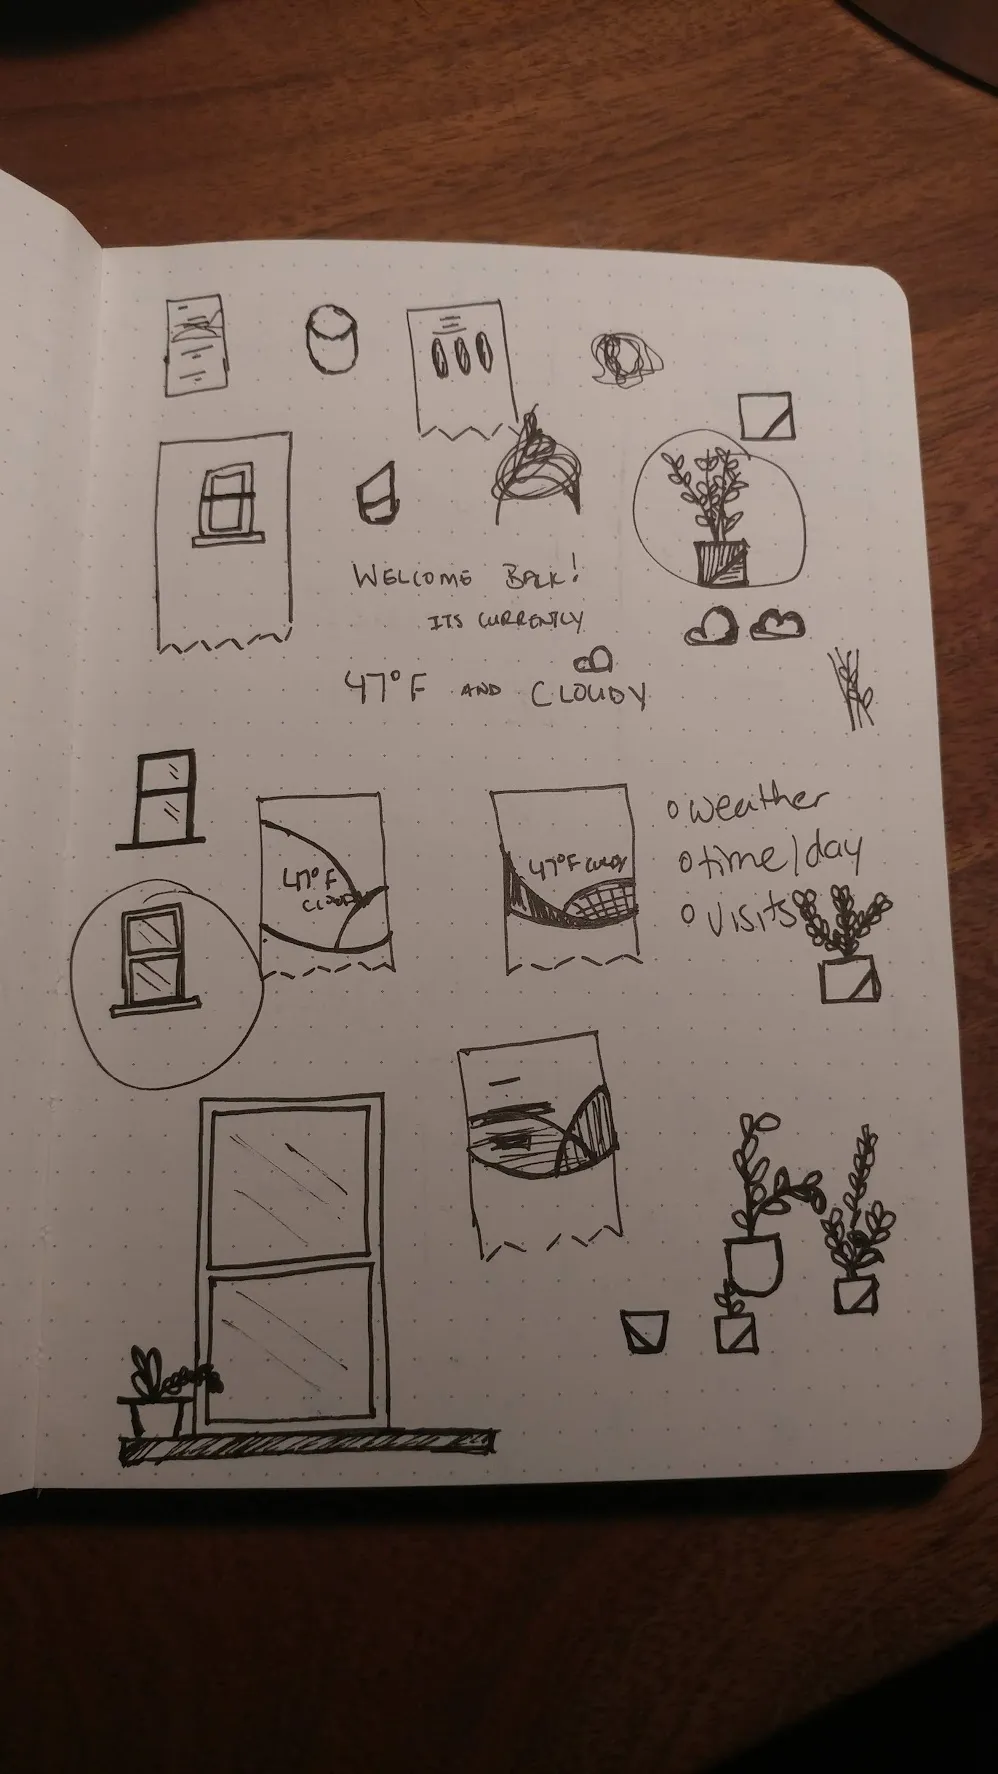 WELCOME BACK!
ITS CURRENTLY
47°F AND CLOUDY
47°F
CLOUDY
47°F CLOUDY
o weather
o time/day
o visits